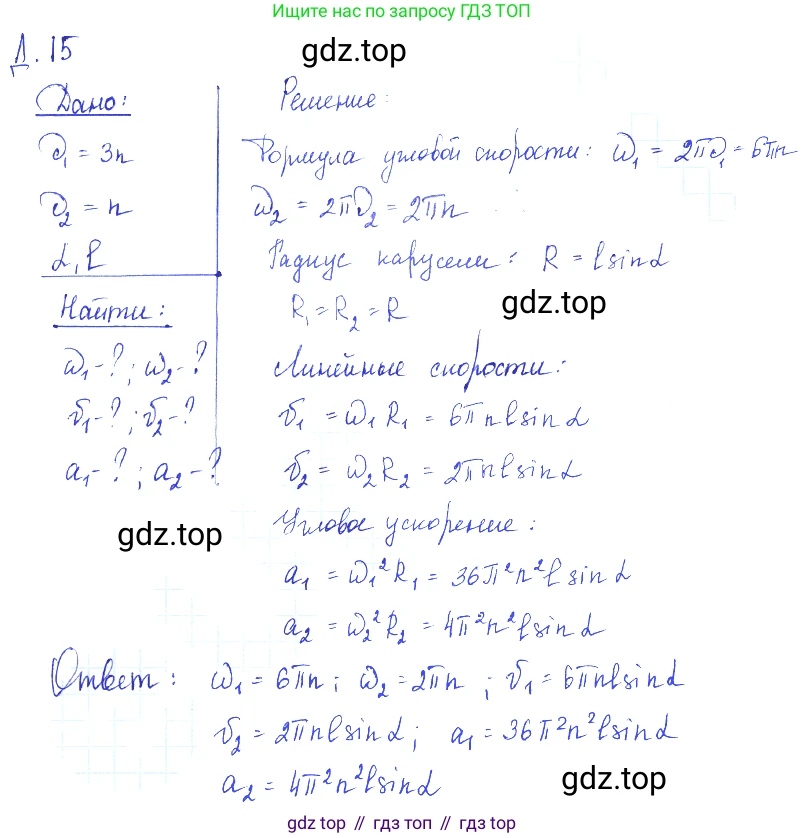 Ищите нас по запросу ГДЗ ТОП
Д. 15
gdz.top
Дано:
Решение:
∂₁ = 3n
Формула угловой скорости: ω₁ = 2π∂₁ = 6πn
∂₂ = n
ω₂ = 2π∂₂ = 2πn
α, ℓ
Радиус карусели: R = ℓsinα
Найти:
R₁ = R₂ = R
gdz.top
ω₁-?; ω₂-?
Линейные скорости:
υ₁-?; υ₂-?
υ₁ = ω₁R₁ = 6πnℓsinα
a₁-?; a₂-?
υ₂ = ω₂R₂ = 2πnℓsinα
gdz.top
Угловое ускорение:
a₁ = ω₁²R₁ = 36π²n²ℓsinα
a₂ = ω₂²R₂ = 4π²n²ℓsinα
Ответ: ω₁ = 6πn; ω₂ = 2πn; υ₁ = 6πnℓsinα
υ₂ = 2πnℓsinα; a₁ = 36π²n²ℓsinα
a₂ = 4π²n²ℓsinα
gdz.top
gdz top // гдз топ // gdz top